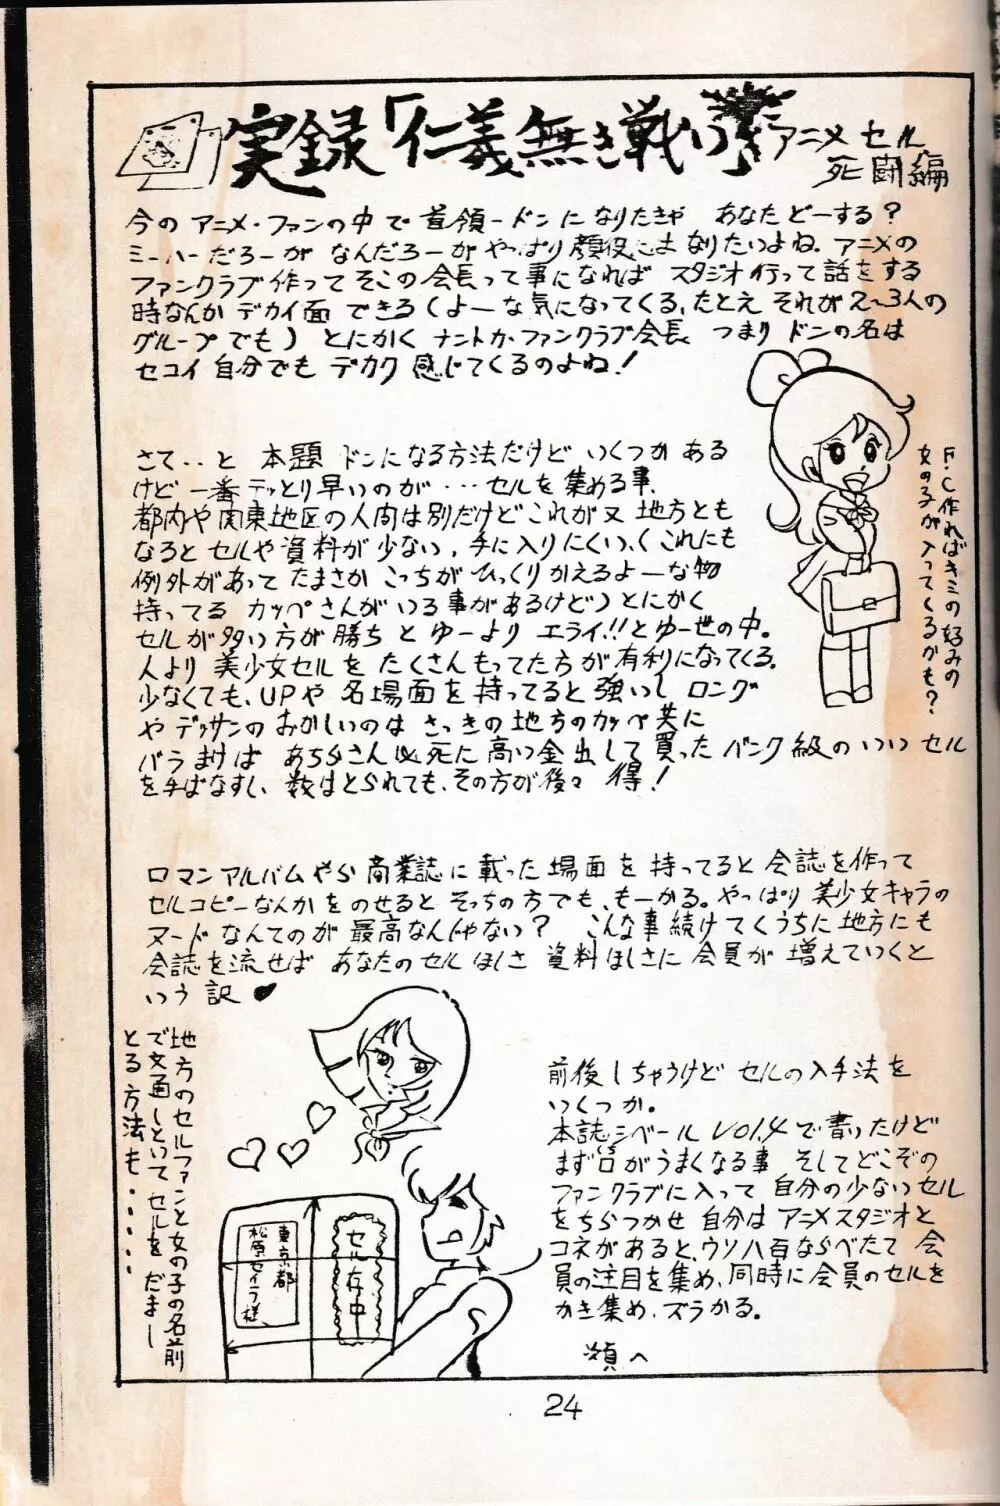 実録「仁義無き戦い」アニメセル
死闘編
今の アニメ・ファンの中で 首領ードンになりたきゃ あなたどーする?
ミーハーだろーが なんだろーが やっぱり顔役には なりたいよね。アニメの
ファンクラブ作って そこの会長って事になれば スタジオ行って話をする
時なんか デカイ面 できる (よーな気になってくる、たとえ それが2〜3人の
グループでも) とにかく ナントカ・ファンクラブ会長 つまり ドンの名は
セコイ自分でも デカク 感じてくるのよね!
F・C作ればキミの好みの
女の子が入ってくるかも?
さて‥と 本題 ドンになる方法だけど いくつか ある
けど 一番 テッとり早いのが …セルを集める事、
都内や関東地区の人間は別だけど これが又 地方とも
なると セルや資料が少ない、手に入りにくい、( これにも
例外があって たまさか こっちが ひっくりかえるよーな物
持ってる カッペさんがいる事があるけど) とにかく
セルが多い方が勝ち と ゆーより エライ!!とゆー世の中。
人より 美少女セルを たくさんもってた方が有利になってくる。
少なくても、UPや 名場面を持ってると強いし ロング
や デッサンのおかしいのは さっきの地方のカッペ共に
バラまけば あちらさん必死に高い金出して買ったバンク級のいいセル
を手ばなすし、数はとられても、その方が後々 得!
ロマンアルバムやら 商業誌に載った場面を 持ってると 会誌を作って
セルコピーなんかをのせると そっちの方でも、もーかる。やっぱり美少女キャラの
ヌード なんてのが 最高なんじゃない? こんな事続けてくうちに地方にも
会誌を流せば あなたのセル ほしさ 資料ほしさに 会員が 増えていくと
いう 訳 ♥
地方のセルファンと女の子の名前
で文通しといてセルをだまし
とる方法も・・・・・
東京都
松原セイラ様
セル在中
前後しちゃうけど セルの入手法を
いくつか。
本誌シベール Vol.4で書ったけど
まず口がうまくなる事 そしてどこぞの
ファンクラブに入って 自分の少ないセル
をちらつかせ 自分は アニメスタジオと
コネがあると、ウソ八百ならべたて 会
員の注目を集め、同時に会員のセルを
かき集め、ズラかる。
次頁へ
24